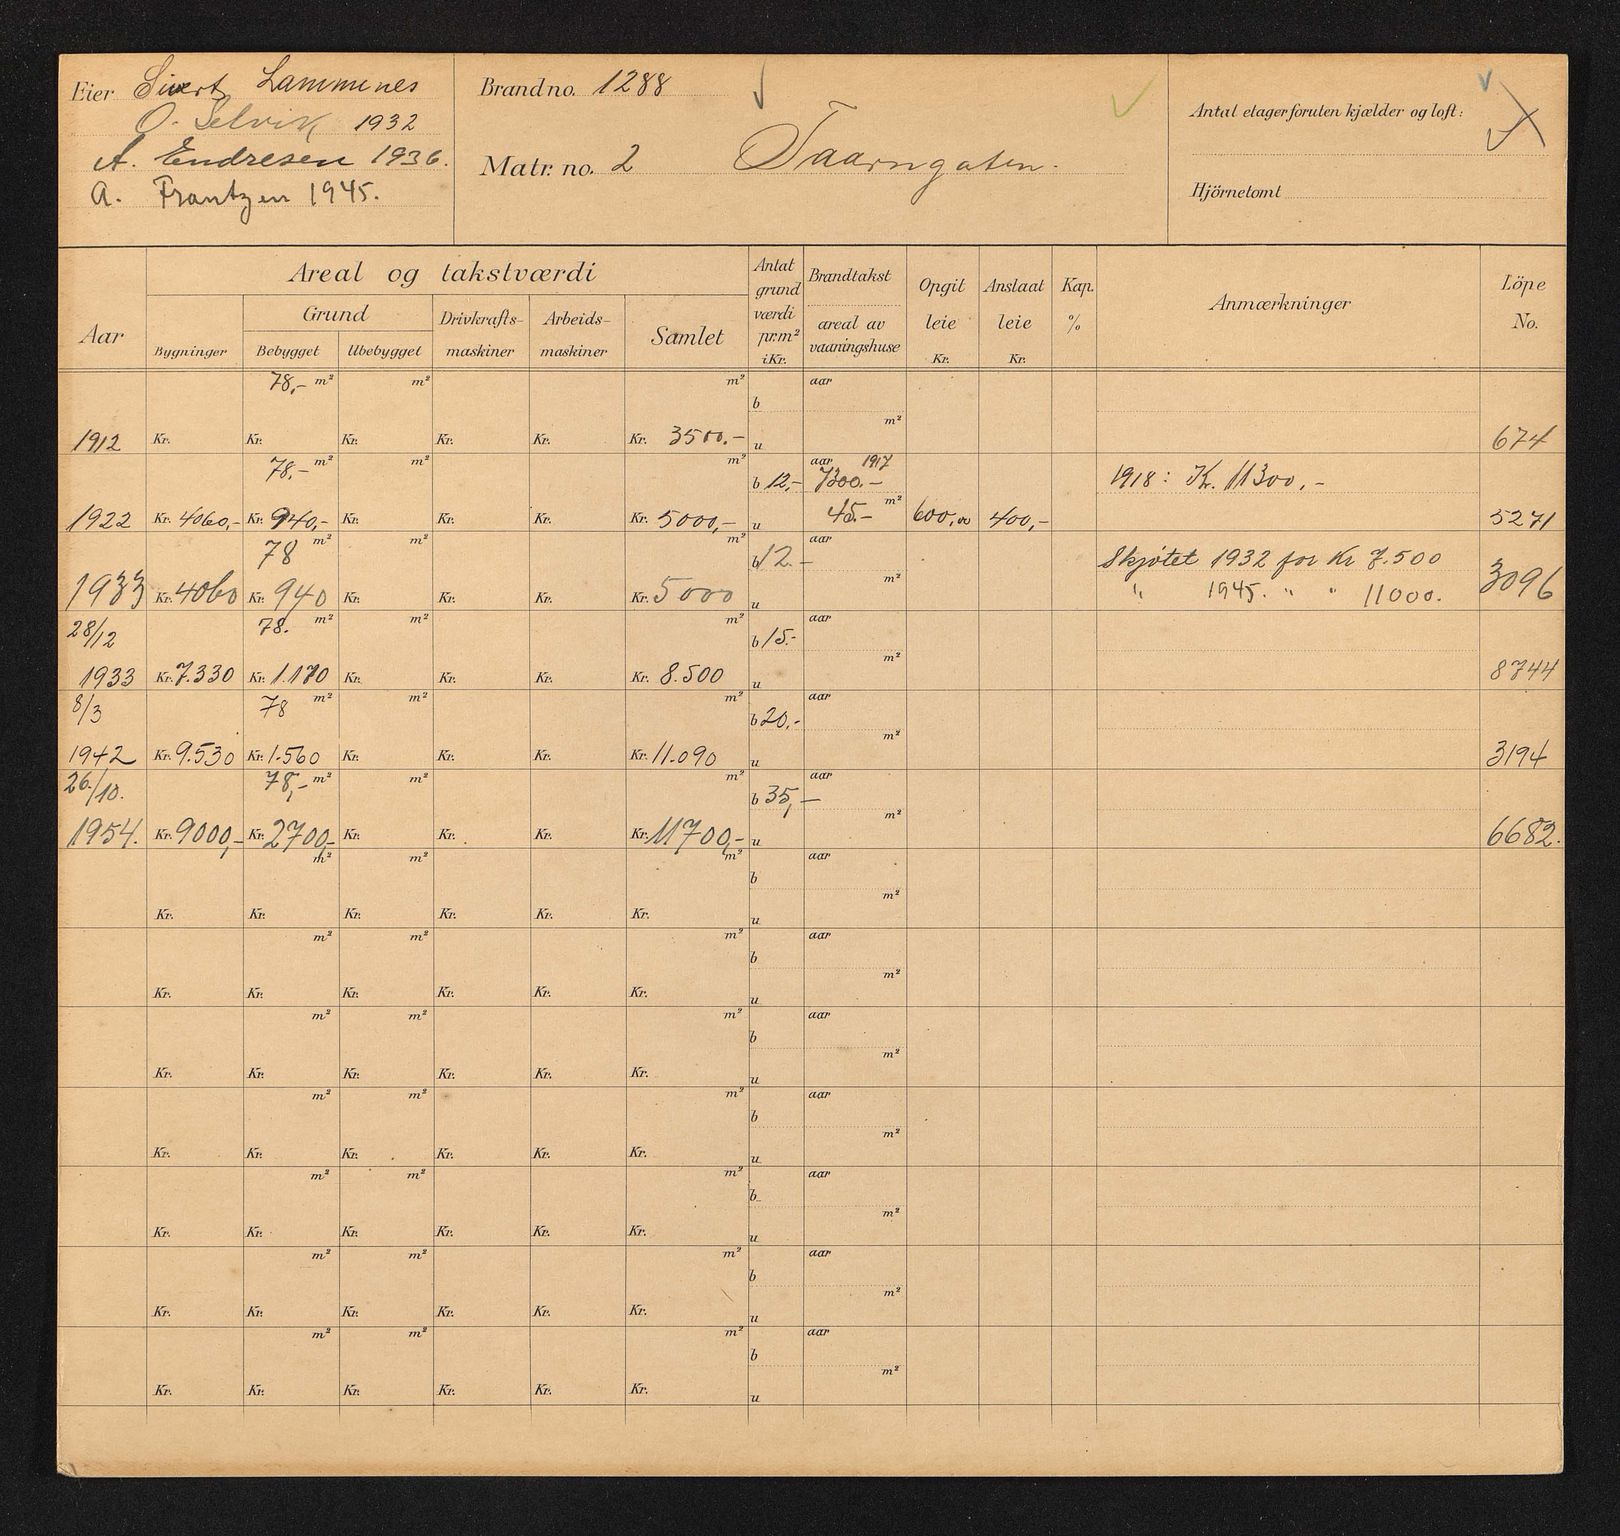 Eier Sivert Lammenes
O. Selvik 1932
A. Endresen 1936.
A. Frantzen 1945.
Brand no. 1288
Matr. no. 2 Taarngaten.
Antal etager foruten kjælder og loft:
Hjörnetomt
Aar
Areal og takstværdi
Grund
Bygninger
Bebygget
Ubebygget
Drivkrafts-
maskiner
Arbeids-
maskiner
Samlet
Antat
grund
værdi
pr. m²
i Kr.
Brandtakst
areal av
vaaningshuse
Opgit
leie
Kr.
Anslaat
leie
Kr.
Kap.
%
Anmærkninger
Löpe
No.
78,- m² m² m² b aar m²
1912 Kr. Kr. Kr. Kr. Kr. Kr. 3500.- u 674
78.- m² m² m² b 12,- aar 1917 7300.- 1918: Kr. 11300,-
1922 Kr. 4060,- Kr. 940,- Kr. Kr. Kr. Kr. 5000,- u 45.- m² 600,00 400,- 5271
78 m² m² m² b 12.- aar m² Skjøtet 1932 for Kr 7.500
1933 Kr. 4060 Kr. 940 Kr. Kr. Kr. Kr. 5000 u " 1945. " " 11000. 3096
28/12 78. m² m² m² b 15.- aar m²
1933 Kr. 7.330 Kr. 1.170 Kr. Kr. Kr. Kr. 8.500 u 8744
8/3 78 m² m² m² b 20.- aar m²
1942 Kr. 9.530 Kr. 1.560 Kr. Kr. Kr. Kr. 11.090 u 3194
26./10. 78,- m² m² m² b 35,- aar m²
1954. Kr. 9000,- Kr. 2700,- Kr. Kr. Kr. Kr. 11700,- u 6682.
m² m² m² b aar m²
Kr. Kr. Kr. Kr. Kr. Kr. u
m² m² m² b aar m²
Kr. Kr. Kr. Kr. Kr. Kr. u
m² m² m² b aar m²
Kr. Kr. Kr. Kr. Kr. Kr. u
m² m² m² b aar m²
Kr. Kr. Kr. Kr. Kr. Kr. u
m² m² m² b aar m²
Kr. Kr. Kr. Kr. Kr. Kr. u
m² m² m² b aar m²
Kr. Kr. Kr. Kr. Kr. Kr. u
m² m² m² b aar m²
Kr. Kr. Kr. Kr. Kr. Kr. u